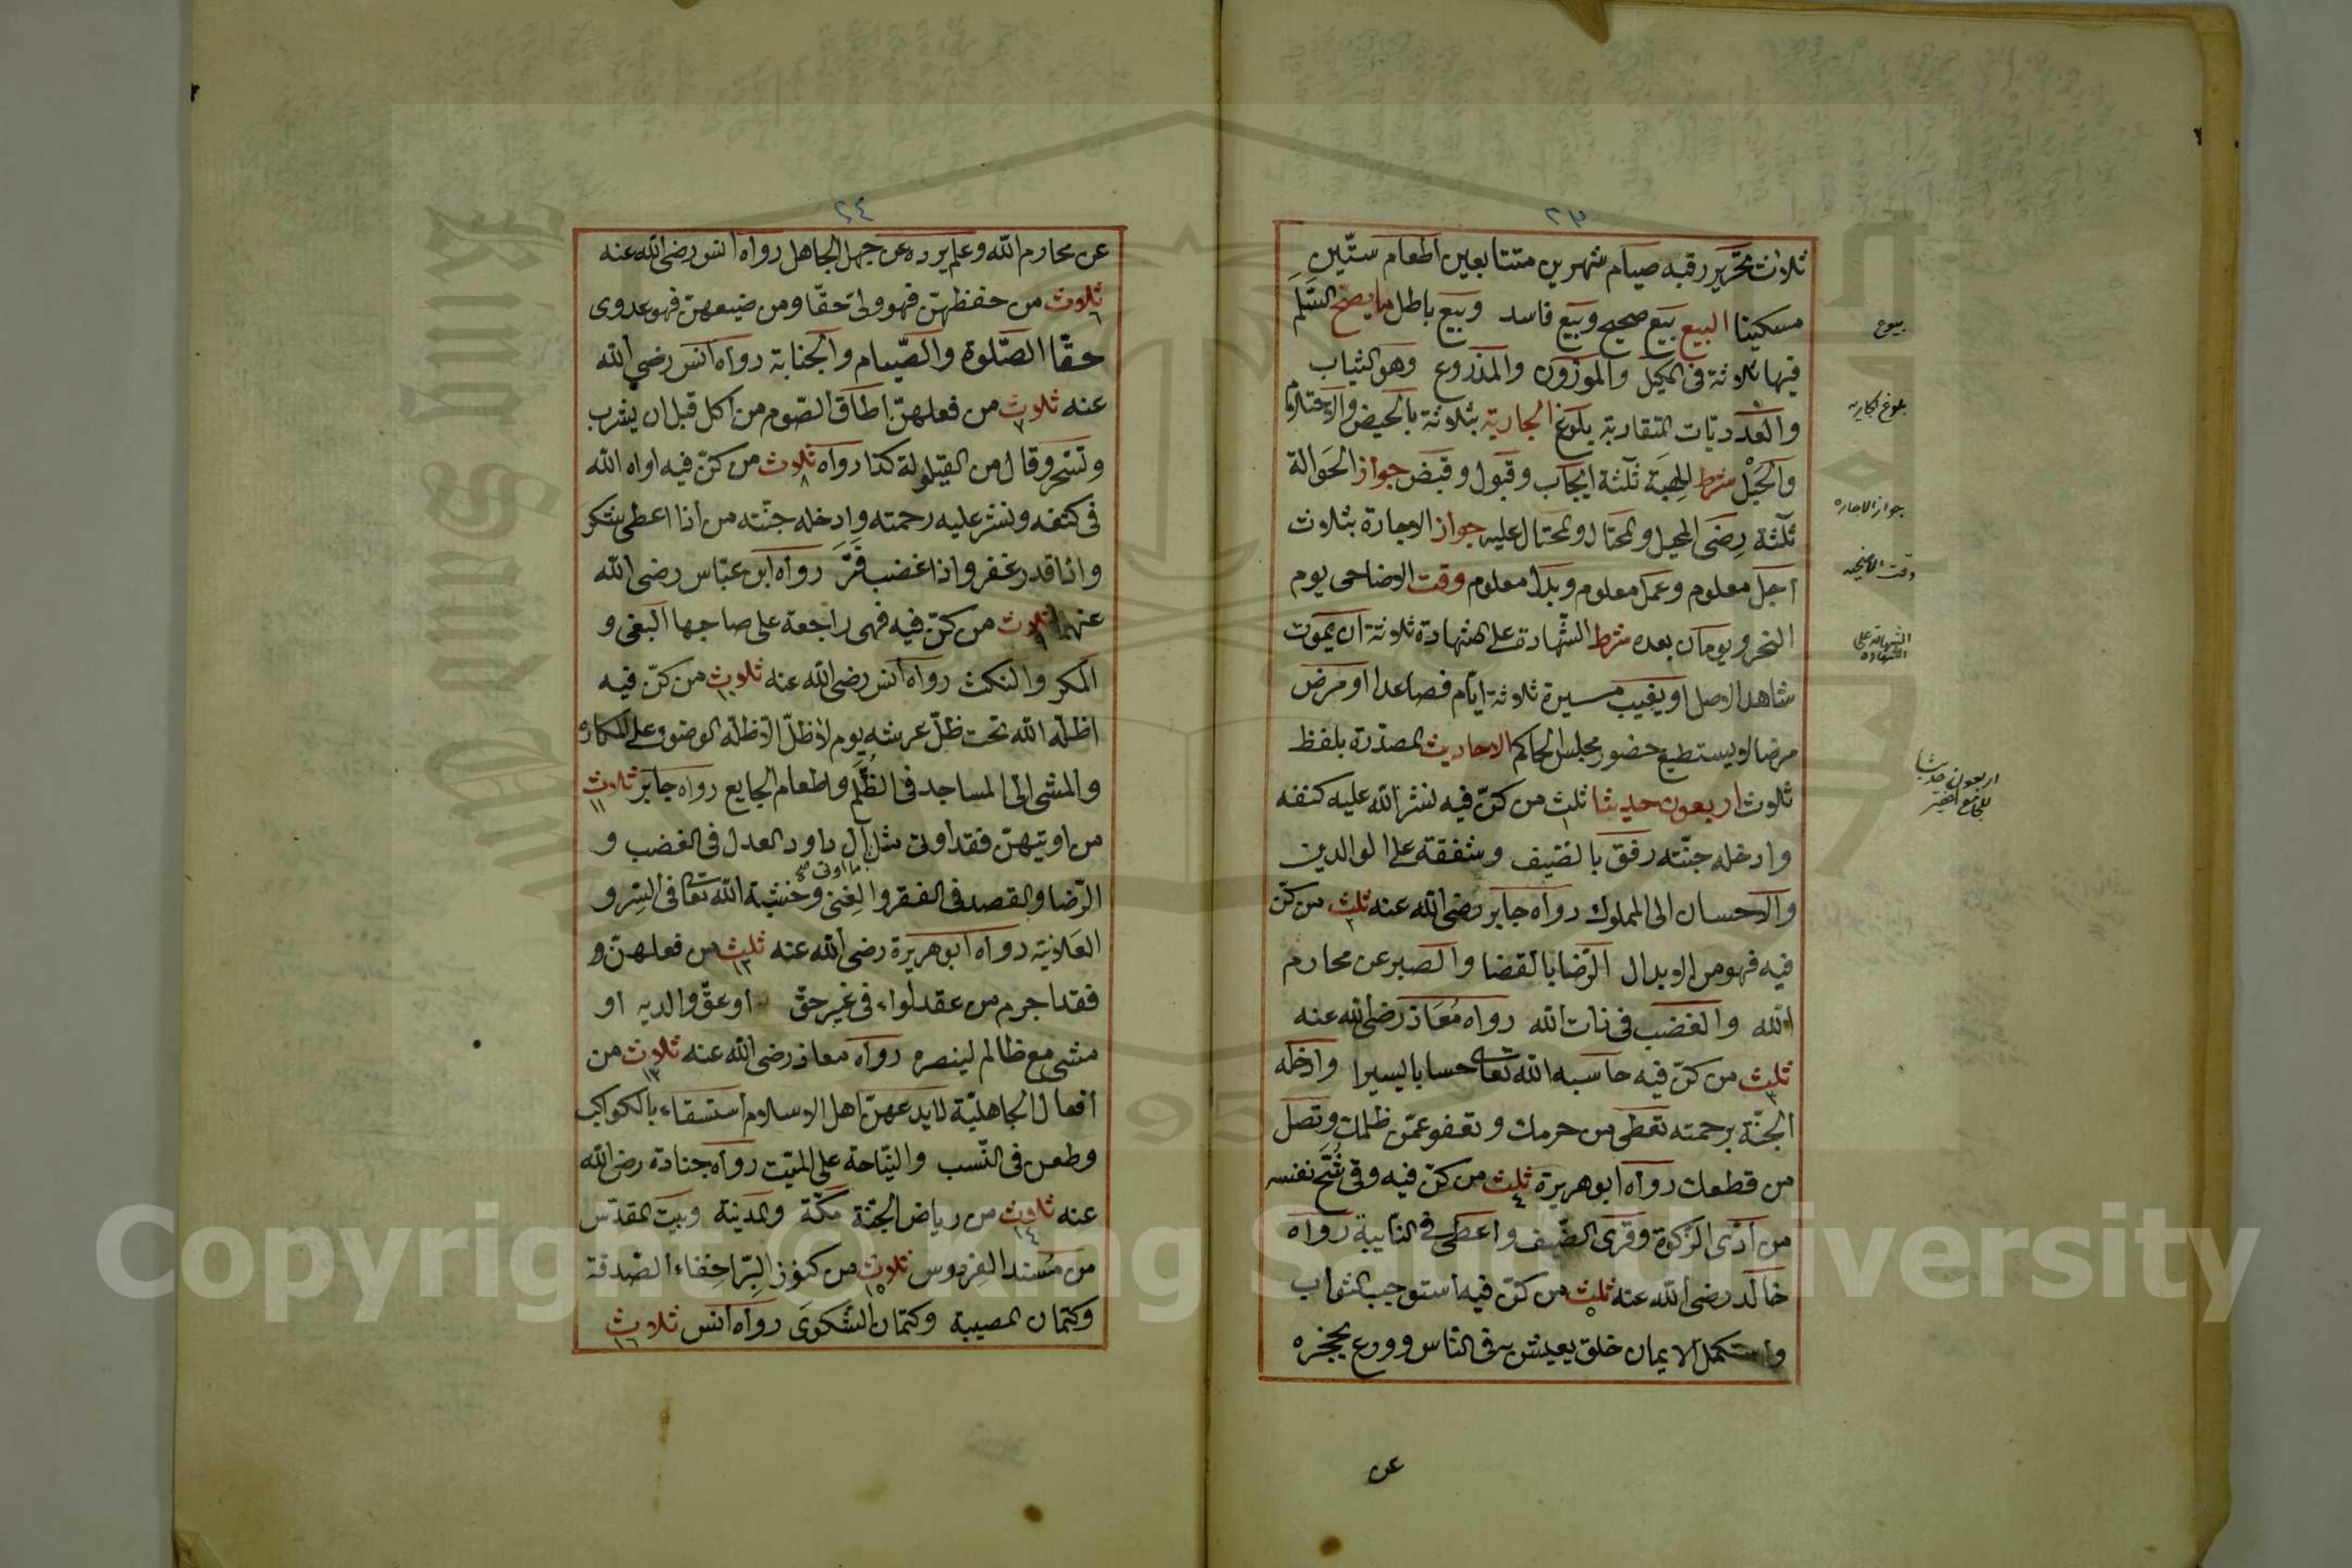 ٢٣
ثلاث تحرير رقبه صيام شهرين متتابعين اطعام ستّين
مسكينا البيع بيع صحيح وبيع فاسد وبيع باطل ما يصح السّلم
فيها ثلاثة فى المكيل والموزون والمذروع وهو الثياب
والعدديّات المتقاربة بلوغ الجارية بثلاثة بالحيض والاحتلام
والحبل شرط الهبة ثلثة ايجاب وقبول وقبض جواز الحوالة
ثلثة رضى المحيل والمحتال والمحتال عليه جواز الاجارة بثلاث
اجل معلوم وعمل معلوم وبدل معلوم وقت الاضاحى يوم
النحر ويومان بعده شرط الشّهادة على الشهادة ثلاثة ان يموت
شاهد الاصل او يغيب مسيرة ثلاثة ايّام فصاعدا او مرض
مرضا لا يستطيع حضور مجلس الحاكم الاحاديث المصدّرة بلفظ
ثلاث اربعون حديثا ثلث من كنّ فيه نشر الله عليه كنفه
وادخله جنّته رفق بالضّيف وشفقة على الوالدين
والاحسان الى المملوك رواه جابر رضى الله عنه ثلث من كنّ
فيه فهو من الابدال الرّضا بالقضا والصبر عن محارم
الله والغضب فى ذات الله رواه مُعَاذ رضى الله عنه
ثلث من كنّ فيه حاسبه الله تعالى حسابا يسيرا وادخله
الجنّة برحمته تعطى من حرمك وتعفو عمّن ظلمك وتصل
من قطعك رواه ابو هريرة ثلث من كنّ فيه وقى شُحَّ نفسه
من ادّى الزّكوة وقرى الضّيف واعطى فى النّايبة رواه
خالد رضى الله عنه ثلث من كنّ فيه استوجب الثواب
واستكمل الايمان خلق يعيش به فى الناس وورع يحجزه
عن
بيوع
بلوغ الجاريه
جواز الاجاره
وقت الاضحيه
الشهادة على
الشهاده
اربعون حديثا
للجامع الصغير
٢٤
عن محارم الله وعلم يرده عن جهل الجاهل رواه انس رضى الله عنه
ثلاث من حفظهنّ فهو ولىّ حقّا ومن ضيعهنّ فهو عدوى
حقّا الصّلوة والصّيام والجنابة رواه انس رضى الله
عنه ثلاث من فعلهنّ اطاق الصّوم من اكل قبل ان يشرب
وتسحّر وقال من القيلولة كذا رواه ثلاث من كنّ فيه اواه الله
فى كنفه ونشر عليه رحمته وادخله جنّته من اذا اعطى شكر
واذا قدر غفر واذا غضب فَتَرَ رواه ابن عبّاس رضى الله
عنهما ثلاث من كنّ فيه فهى راجعة على صاحبها البغى و
المكر والنكث رواه انس رضى الله عنه ثلاث من كنّ فيه
اظلّه الله تحت ظلّ عرشه يوم لا ظلّ الّا ظلّه الوضوء على المكاره
والمشى الى المساجد فى الظُّلَم واطعام الجايع رواه جابر ثلاث
من اوتيهنّ فقد اوتى مثل آل داود العدل فى الغضب و
ما اوتى صح
الرّضا والقصد فى الفقر والغنى وخشية الله تعالى فى السّر و
العلانية رواه ابو هريرة رضى الله عنه ثلث من فعلهنّ و
فقد اجرم من عقد لواء فى غير حقّ او عقّ والديه او
مشى مع ظالم لينصره رواه معاذ رضى الله عنه ثلاث من
افعال الجاهليّة لا يدعهنّ اهل الاسلام استسقاء بالكواكب
وطعن فى النّسب والنيّاحة على الميّت رواه جنادة رضى الله
عنه ثلاث من رياض الجنّة مكّة والمدينة وبيت المقدّس
من مُسند الفردوس ثلاث من كنوز البِرّ اخفاء الصّدقة
وكتمان المصيبة وكتمان الشّكوى رواه انس ثلاث
Copyright © King Saud University